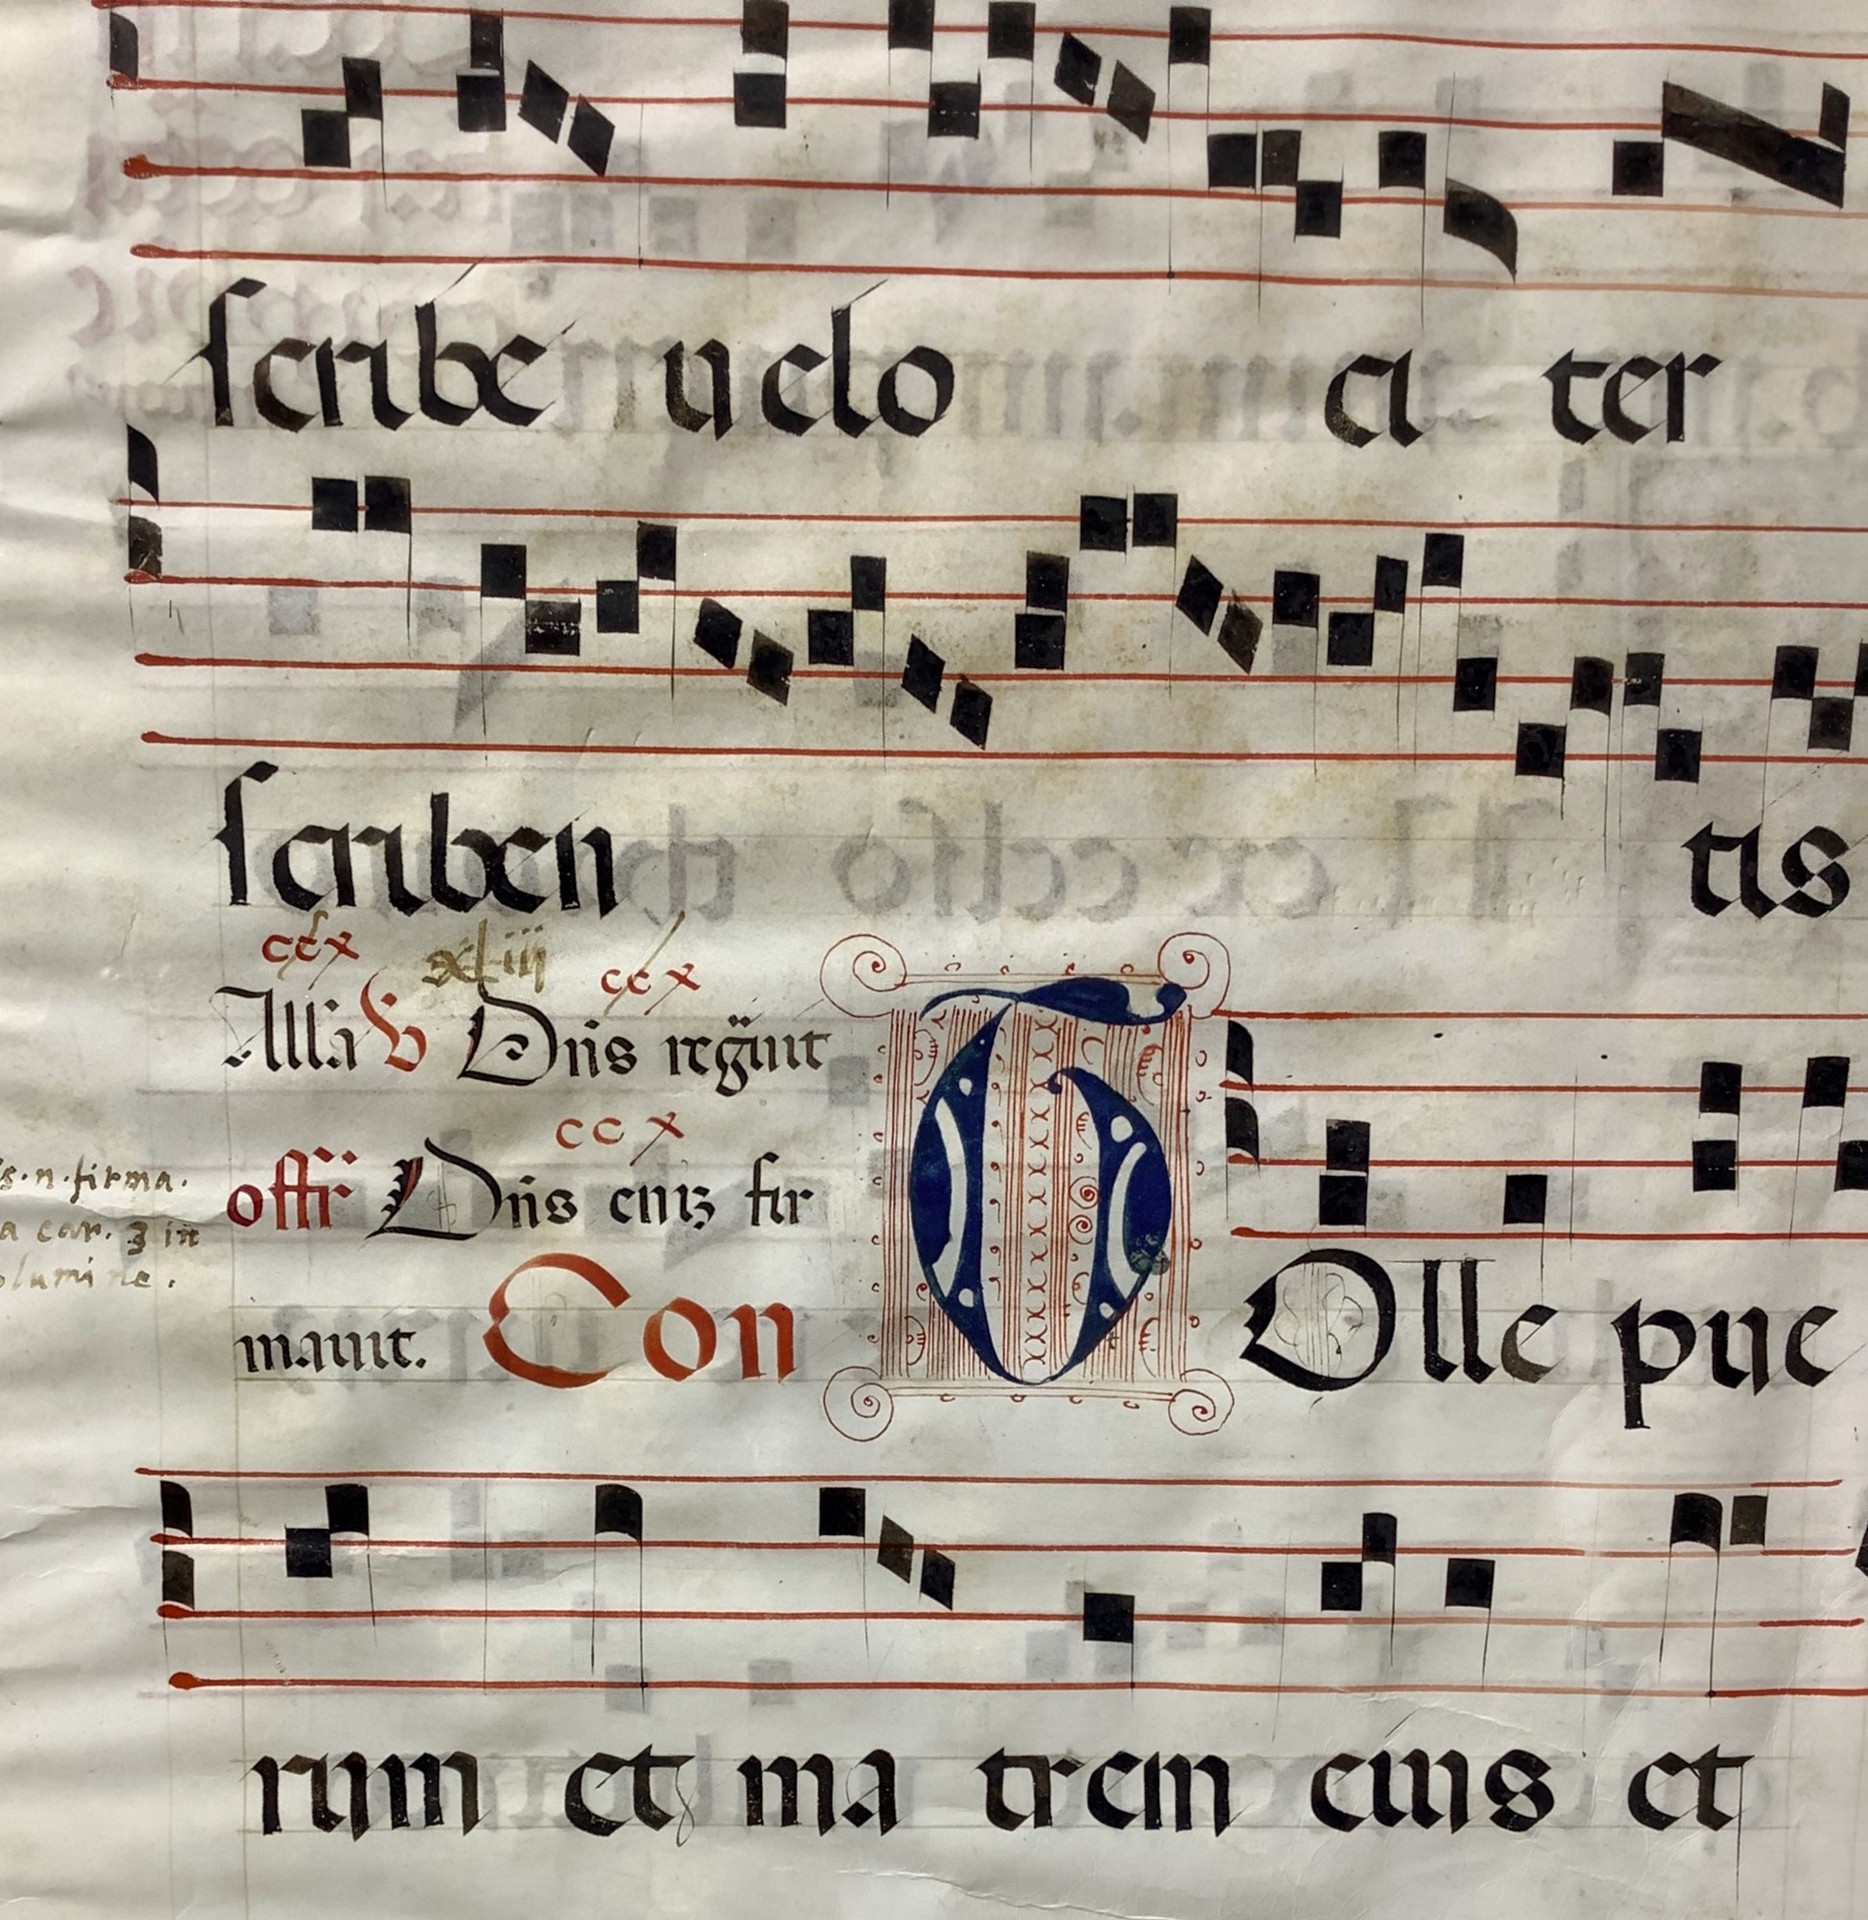 scribe uelo ci ter
scriben tis
ccx xliii ccx
All'a V Dñs regñuit
ccx
offr Dñs eniꝫ fir
mauit. Con
T Olle pue
s.n.firma.
a car. 3 in
olumine.
rum et ma trem eius et